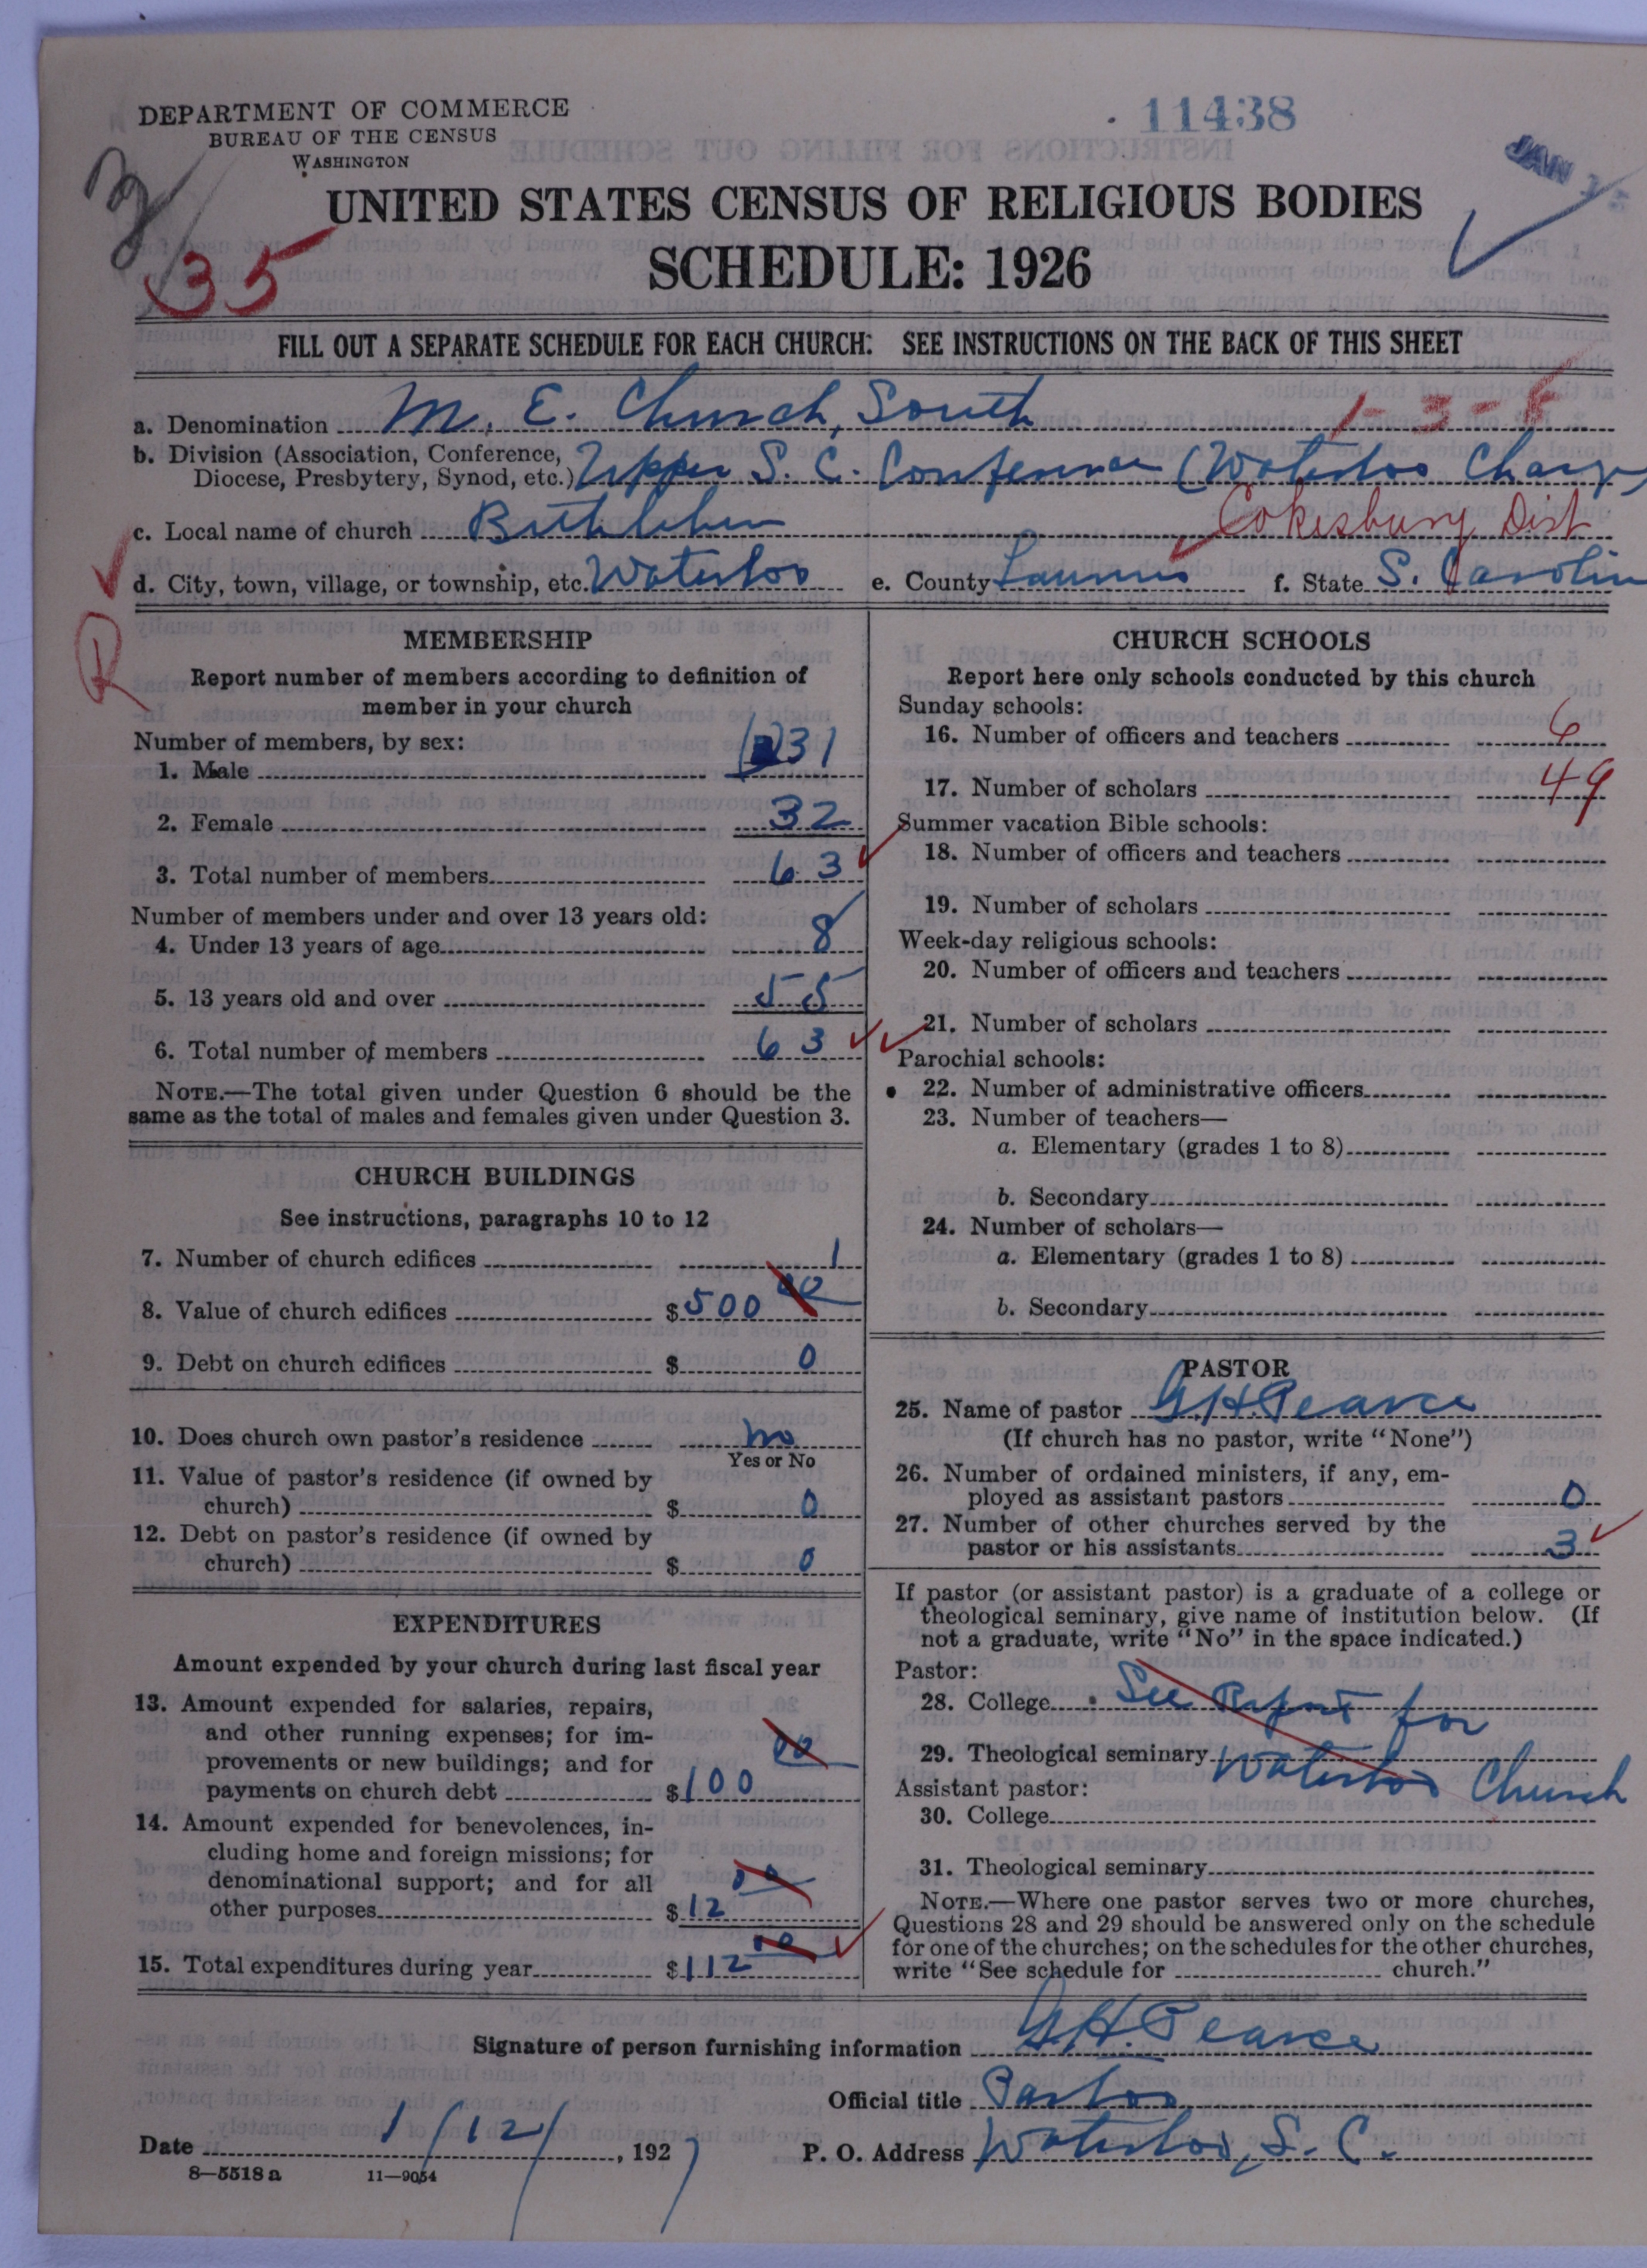 DEPARTMENT OF COMMERCE
BUREAU OF THE CENSUS
WASHINGTON
11438
JAN
35
UNITED STATES CENSUS OF RELIGIOUS BODIES
SCHEDULE: 1926
FILL OUT A SEPARATE SCHEDULE FOR EACH CHURCH. SEE INSTRUCTIONS ON THE BACK OF THIS SHEET
1-3-8
a. Denomination M. E. Church, South
b. Division (Association, Conference, Diocese, Presbytery, Synod, etc.) Upper S. C. Conference (Waterloo Charge)
Cokesbury Dist
c. Local name of church Bethlehem
d. City, town, village, or township, etc. Waterloo e. County Laurens f. State S. Carolin
R
MEMBERSHIP
Report number of members according to definition of
member in your church
Number of members, by sex:
1. Male 31
2. Female 32
3. Total number of members 63
Number of members under and over 13 years old:
4. Under 13 years of age 8
5. 13 years old and over 55
6. Total number of members 63
NOTE.—The total given under Question 6 should be the
same as the total of males and females given under Question 3.
CHURCH BUILDINGS
See instructions, paragraphs 10 to 12
7. Number of church edifices 1
8. Value of church edifices $500 00
9. Debt on church edifices $ 0
10. Does church own pastor's residence no
Yes or No
11. Value of pastor's residence (if owned by
church) $ 0
12. Debt on pastor's residence (if owned by
church) $ 0
EXPENDITURES
Amount expended by your church during last fiscal year
13. Amount expended for salaries, repairs,
and other running expenses; for im-
provements or new buildings; and for
payments on church debt $100 00
14. Amount expended for benevolences, in-
cluding home and foreign missions; for
denominational support; and for all
other purposes $12 00
15. Total expenditures during year $112 00
CHURCH SCHOOLS
Report here only schools conducted by this church
Sunday schools:
16. Number of officers and teachers 6
17. Number of scholars 49
Summer vacation Bible schools:
18. Number of officers and teachers
19. Number of scholars
Week-day religious schools:
20. Number of officers and teachers
21. Number of scholars
Parochial schools:
22. Number of administrative officers
23. Number of teachers—
a. Elementary (grades 1 to 8)
b. Secondary
24. Number of scholars—
a. Elementary (grades 1 to 8)
b. Secondary
PASTOR
25. Name of pastor G. H. Pearce
(If church has no pastor, write "None")
26. Number of ordained ministers, if any, em-
ployed as assistant pastors 0
27. Number of other churches served by the
pastor or his assistants 3
If pastor (or assistant pastor) is a graduate of a college or
theological seminary, give name of institution below. (If
not a graduate, write "No" in the space indicated.)
Pastor:
28. College See Report for
29. Theological seminary Waterloo Church
Assistant pastor:
30. College
31. Theological seminary
NOTE.—Where one pastor serves two or more churches,
Questions 28 and 29 should be answered only on the schedule
for one of the churches; on the schedules for the other churches,
write "See schedule for church."
Signature of person furnishing information G. H. Pearce
Official title Pastor
Date 1/12/, 1927 P. O. Address Waterloo, S. C.
8—5518 a 11—9054